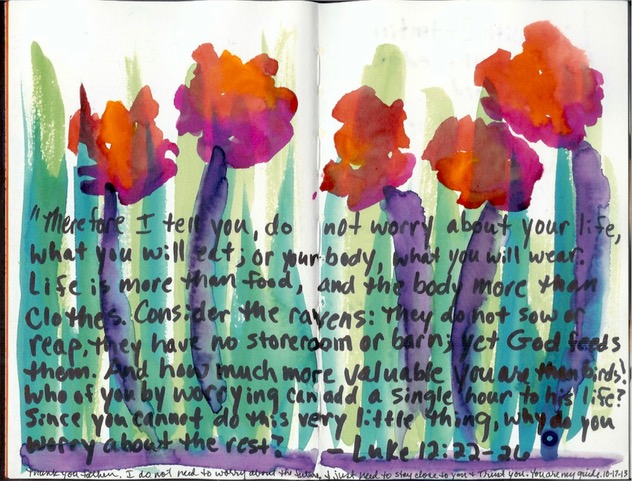 "Therefore I tell you, do not worry about your life,
what you will eat; or your body, what you will wear.
Life is more than food, and the body more than
clothes. Consider the ravens: they do not sow or
reap, they have no storeroom or barn; yet God feeds
them. And how much more valuable you are than birds!
Who of you by worrying can add a single hour to his life?
Since you cannot do this very little thing, why do you
worry about the rest? - Luke 12:22-26
Thank you Father. I do not need to worry about the future, I just need to stay close to you & Trust you. You are my guide. 10-17-13